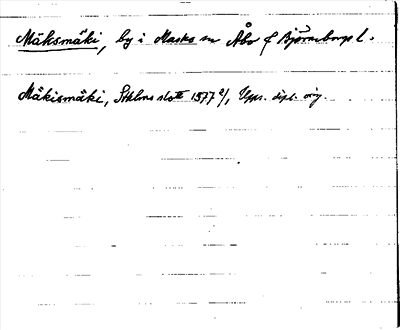 Mäksmäki, by i Masku sn Åbo o Björneborgs l.
Mäkismäki, Sthlms slott 1577 2/, Upps. dipl. orig.